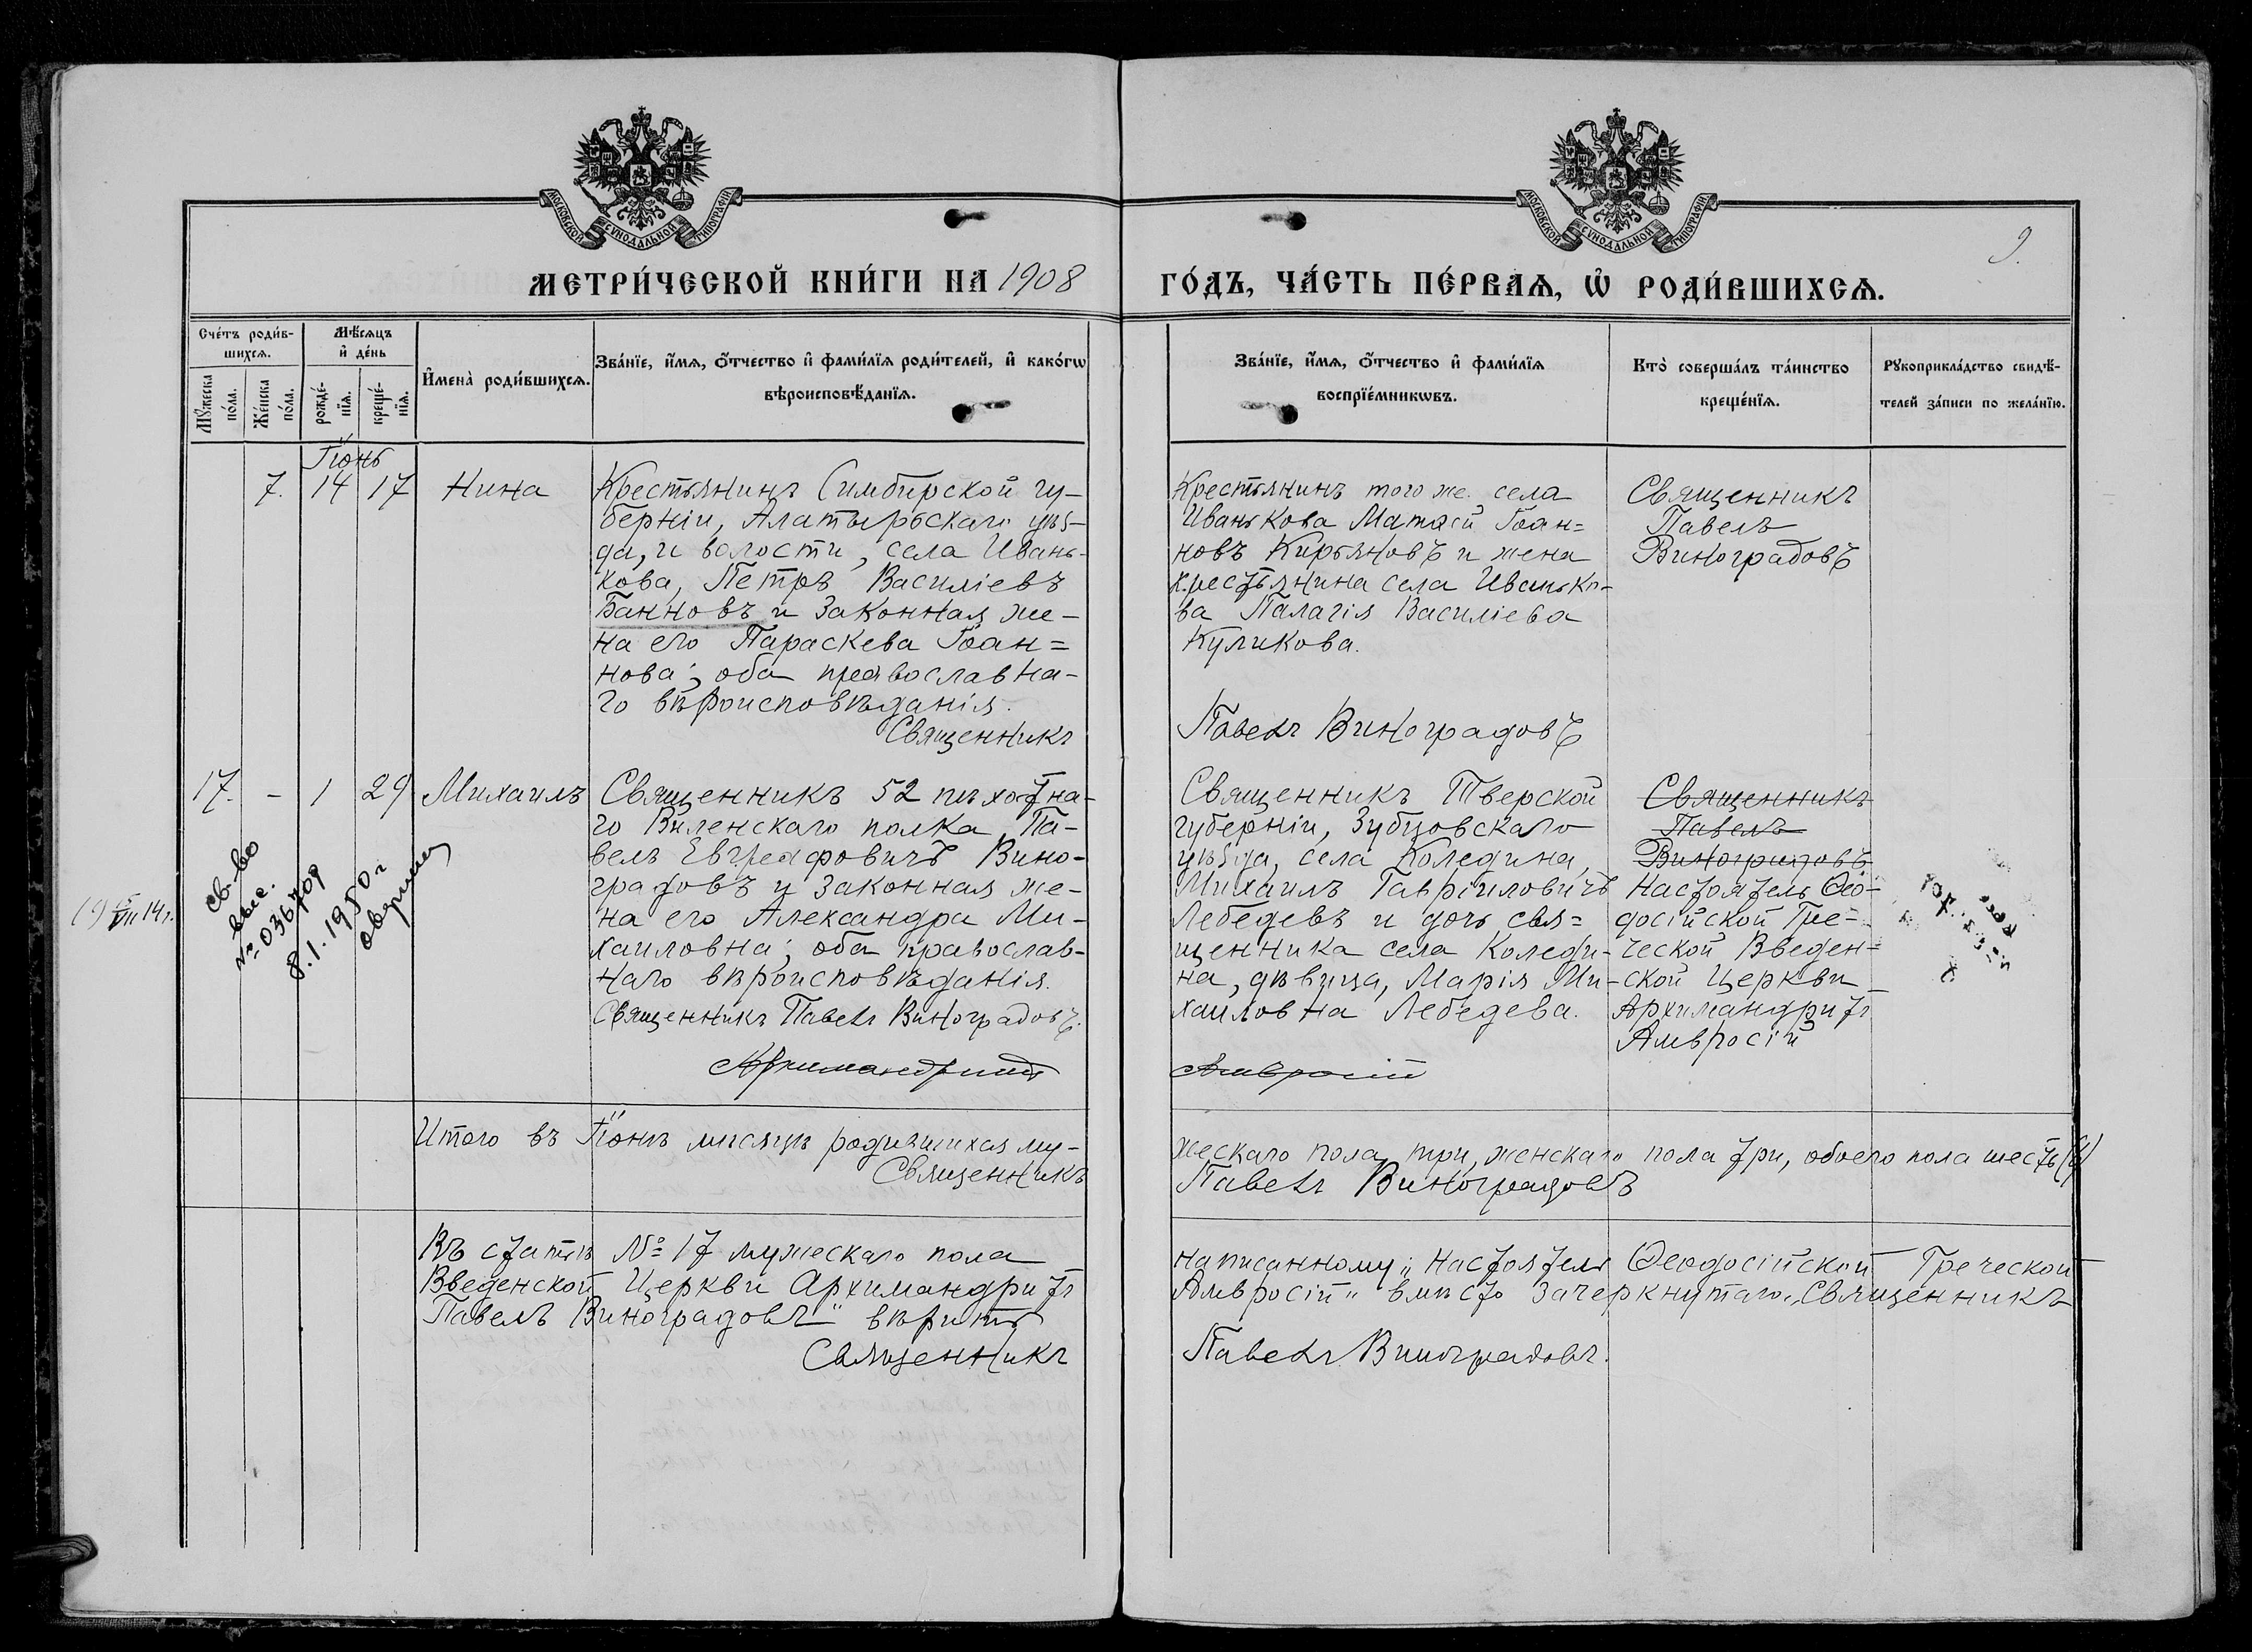 МОСКОВСКОЙ СѴНОДАЛЬНОЙ ТИПОГРАФІИ
МОСКОВСКОЙ СѴНОДАЛЬНОЙ ТИПОГРАФІИ
9.
МЕТРИ́ЧЕСКОЙ КНИ́ГИ НА 1908
ГО́ДЪ, ЧА́СТЬ ПЕ́РВАѦ, Ѡ҆ РОДИ́ВШИХСѦ.
Сче́тъ роди́в-
шихсѧ.
Мꙋ́жеска по́ла.
Же́нска по́ла.
Мѣ́сѧцъ
и҆ де́нь
рожде́-
нїѧ.
креще́-
нїѧ.
И҆мена̀ роди́вшихсѧ.
Зва́нїе, и҆́мѧ, ѻ҆́тчество и҆ фами́лїѧ роди́телей, и҆ како́гѡ
вѣроисповѣ́данїѧ.
Зва́нїе, и҆́мѧ, ѻ҆́тчество и҆ фами́лїѧ
воспрїе́мникѡвъ.
Кто̀ соверша́лъ та́инство
креще́нїѧ.
Рꙋкоприкла́дство свидѣ́-
телей за́писи по жела́нїю.
Іюнь
7. 14 17 Нина
Крестьянинъ Симбирской гу-
берніи, Алатырьскаго уѣз-
да, и волости, села Ивань-
кова, Петръ Василіевъ
Банновъ и законная же-
на его Параскева Іоан=
нова; оба православна-
го вѣроисповѣданія.
Священникъ
Крестьянинъ того же села
Иванькова Матѳій Іоан=
новъ Кирьяновъ и жена
крестьянина села Иванько-
ва Палагія Василіева
Куликова.
Павелъ Виноградовъ
Священникъ
Павелъ
Виноградовъ
17. - 1 29 Михаилъ
Священникъ 52 пѣхотна-
го Виленскаго полка Па-
велъ Евграфовичъ Вино-
градовъ и законная же-
на его Александра Ми-
хаиловна; оба православ-
наго вѣроисповѣданія.
Священникъ Павелъ Виноградовъ.
Архимандритъ
Св-во
выс.
№ 036709
8.1.1950 г
Священникъ Тверской
губерніи, Зубцовскаго
уѣзда, села Коледина,
Михаилъ Гавріиловичъ
Лебедевъ и дочь свя=
щенника села Коледи-
на, дѣвица, Марія Ми-
хаиловна Лебедева.
Амвросій
Священникъ
Павелъ
Виноградовъ
Настоятель Ѳео-
досійской Гре-
ческой Введен=
ской Церкви
Архимандритъ
Амвросій
Итого въ Іюнѣ мѣсяцѣ родившихся му-
Священникъ
жескаго пола три, женскаго пола три, обоего пола шесть (6)
Павелъ Виноградовъ
Въ статьѣ № 17 мужескаго пола
написанному „Настоятель Ѳеодосійской Греческой
Введенской Церкви Архимандритъ
Амвросій" вмѣсто зачеркнутаго „Священникъ
Павелъ Виноградовъ" вѣрить
Священникъ
Павелъ Виноградовъ.